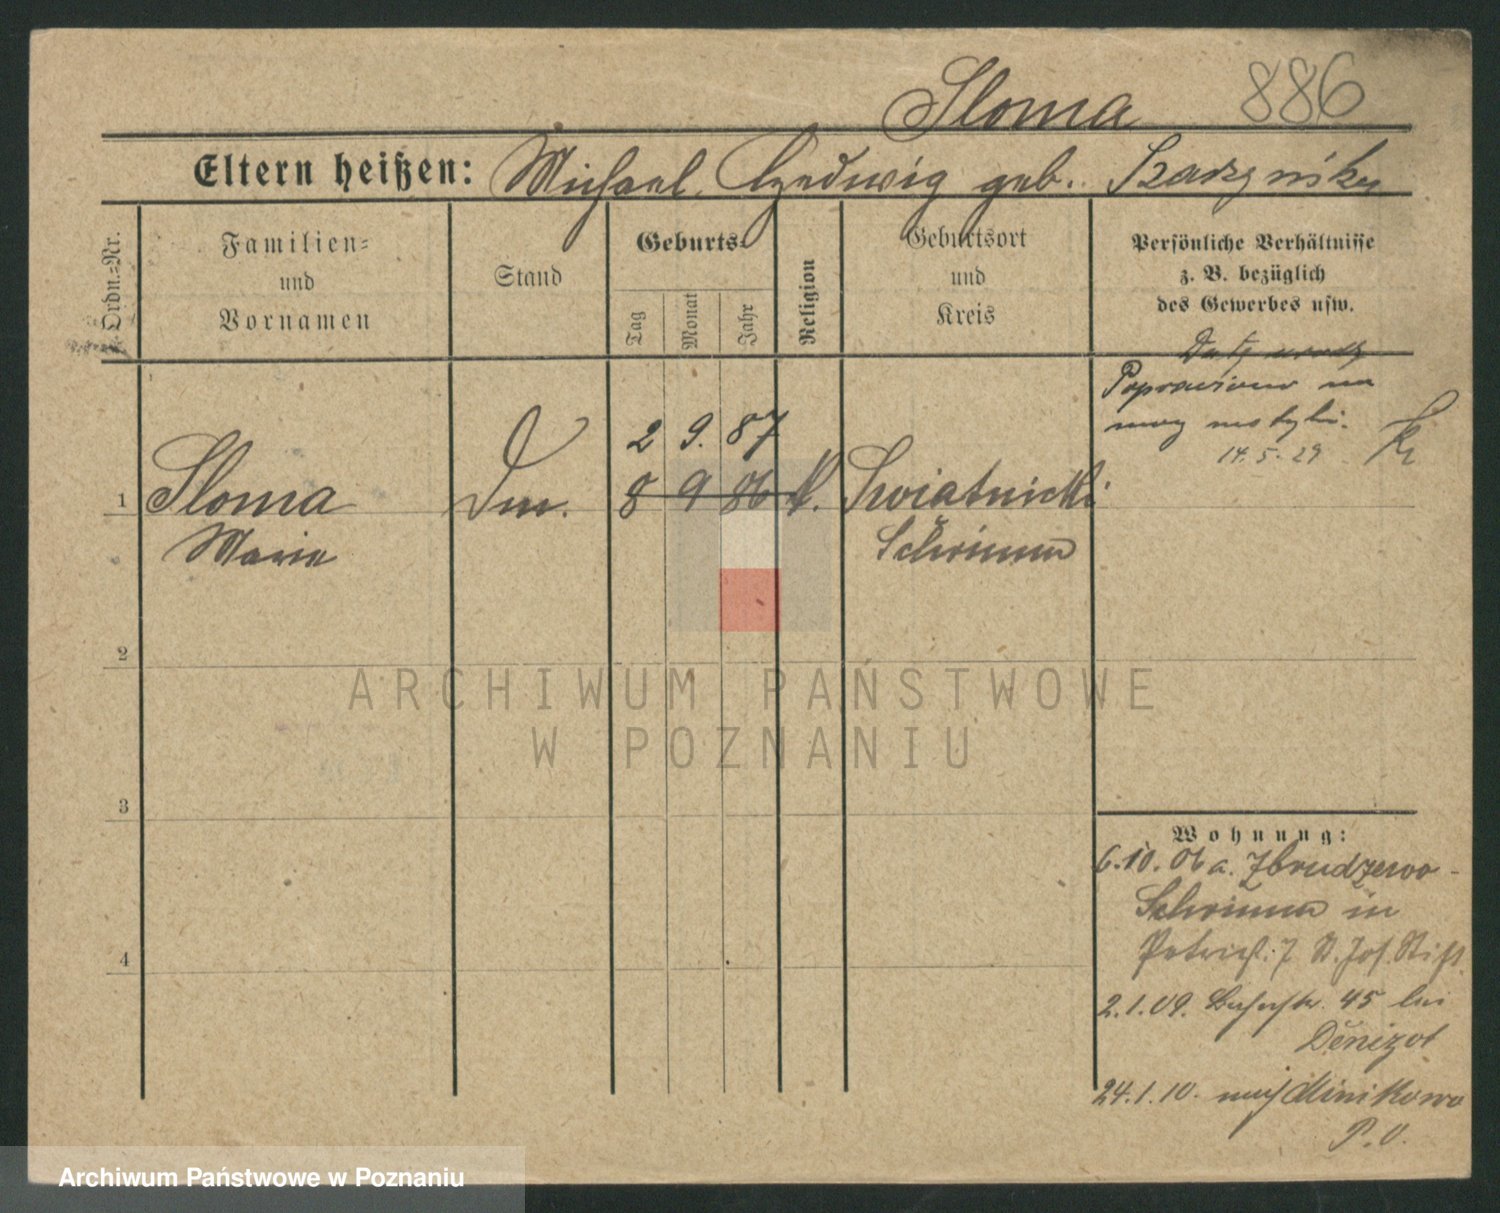 Sloma 886
Eltern heißen: Michael, Hedwig geb.
Ordn.=Nr.
Familien=
und
Vornamen
Stand
Geburts=
Tag
Monat
Jahr
Religion
Geburtsort
und
Kreis
Persönliche Verhältnisse
z. B. bezüglich
des Gewerbes usw.
Datę urodz
Poprawiono na
mocy metryki.
14.5.29
2 9. 87
1 Sloma 8 9 86 K. Swiatnicki
Marie Schrimm
2
3
4
Wohnung:
6.10.06 a. Zbrudzewo-
Schrimm in
Petrich. 7 St. Jos. Stift
2.1.09. 45 bei
Denizot
24.1.10. nach Minikowo
P. O.
ARCHIWUM PAŃSTWOWE
W POZNANIU
Archiwum Państwowe w Poznaniu